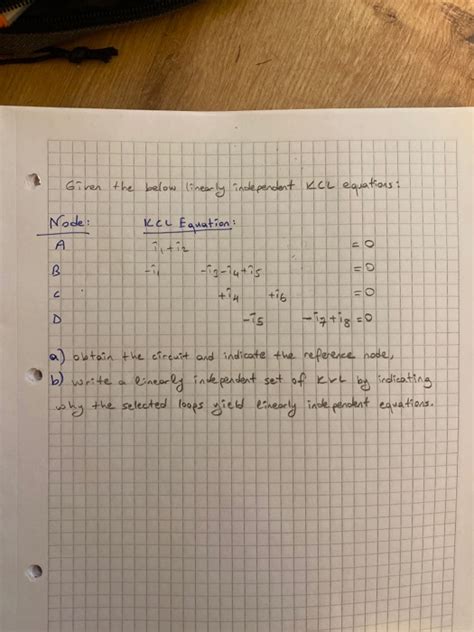 Given the below linearly independent KCL equations:
Node: KCL Equation:
A i₁+i₂ =0
B -i₁ -i₃-i₄+i₅ =0
C +i₄ +i₆ =0
D -i₅ -i₇+i₈=0
a) obtain the circuit and indicate the reference node,
b) write a linearly independent set of KVL by indicating
why the selected loops yield linearly independent equations.